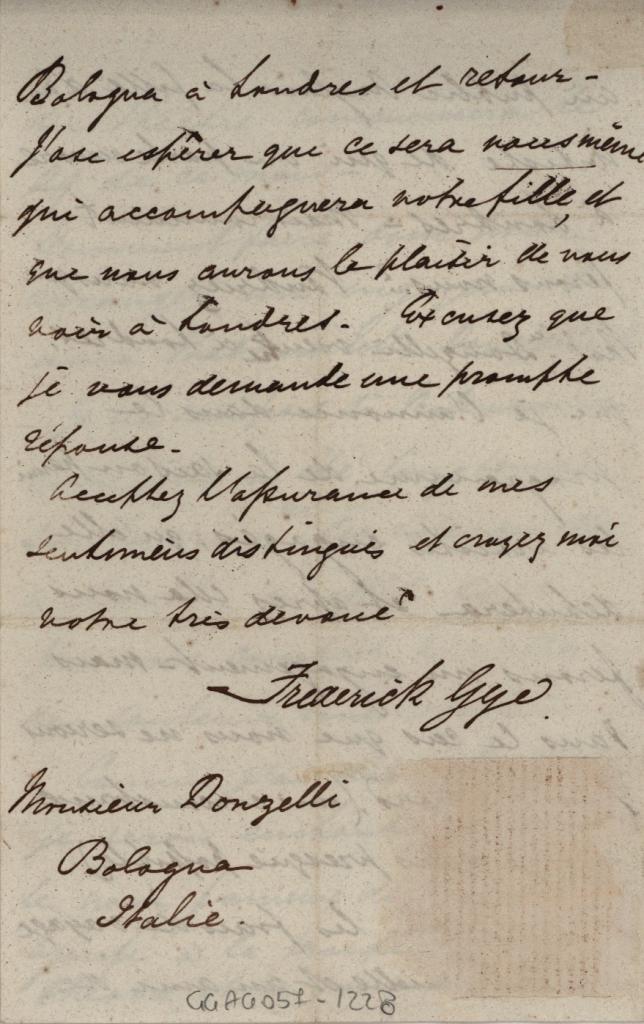 Bologna à Londres et retour -
J'ose espérer que ce sera vous même
qui accompagnera votre fille, et
que nous aurons le plaisir de vous
voir à Londres. Excusez que
je vous demande une prompte
réponse.
Acceptez l'assurance de mes
sentimens distingués et croyez moi
votre très devoué
Frederick Gye.
Monsieur Donzelli
Bologna
Italie.
GGAG051-122B